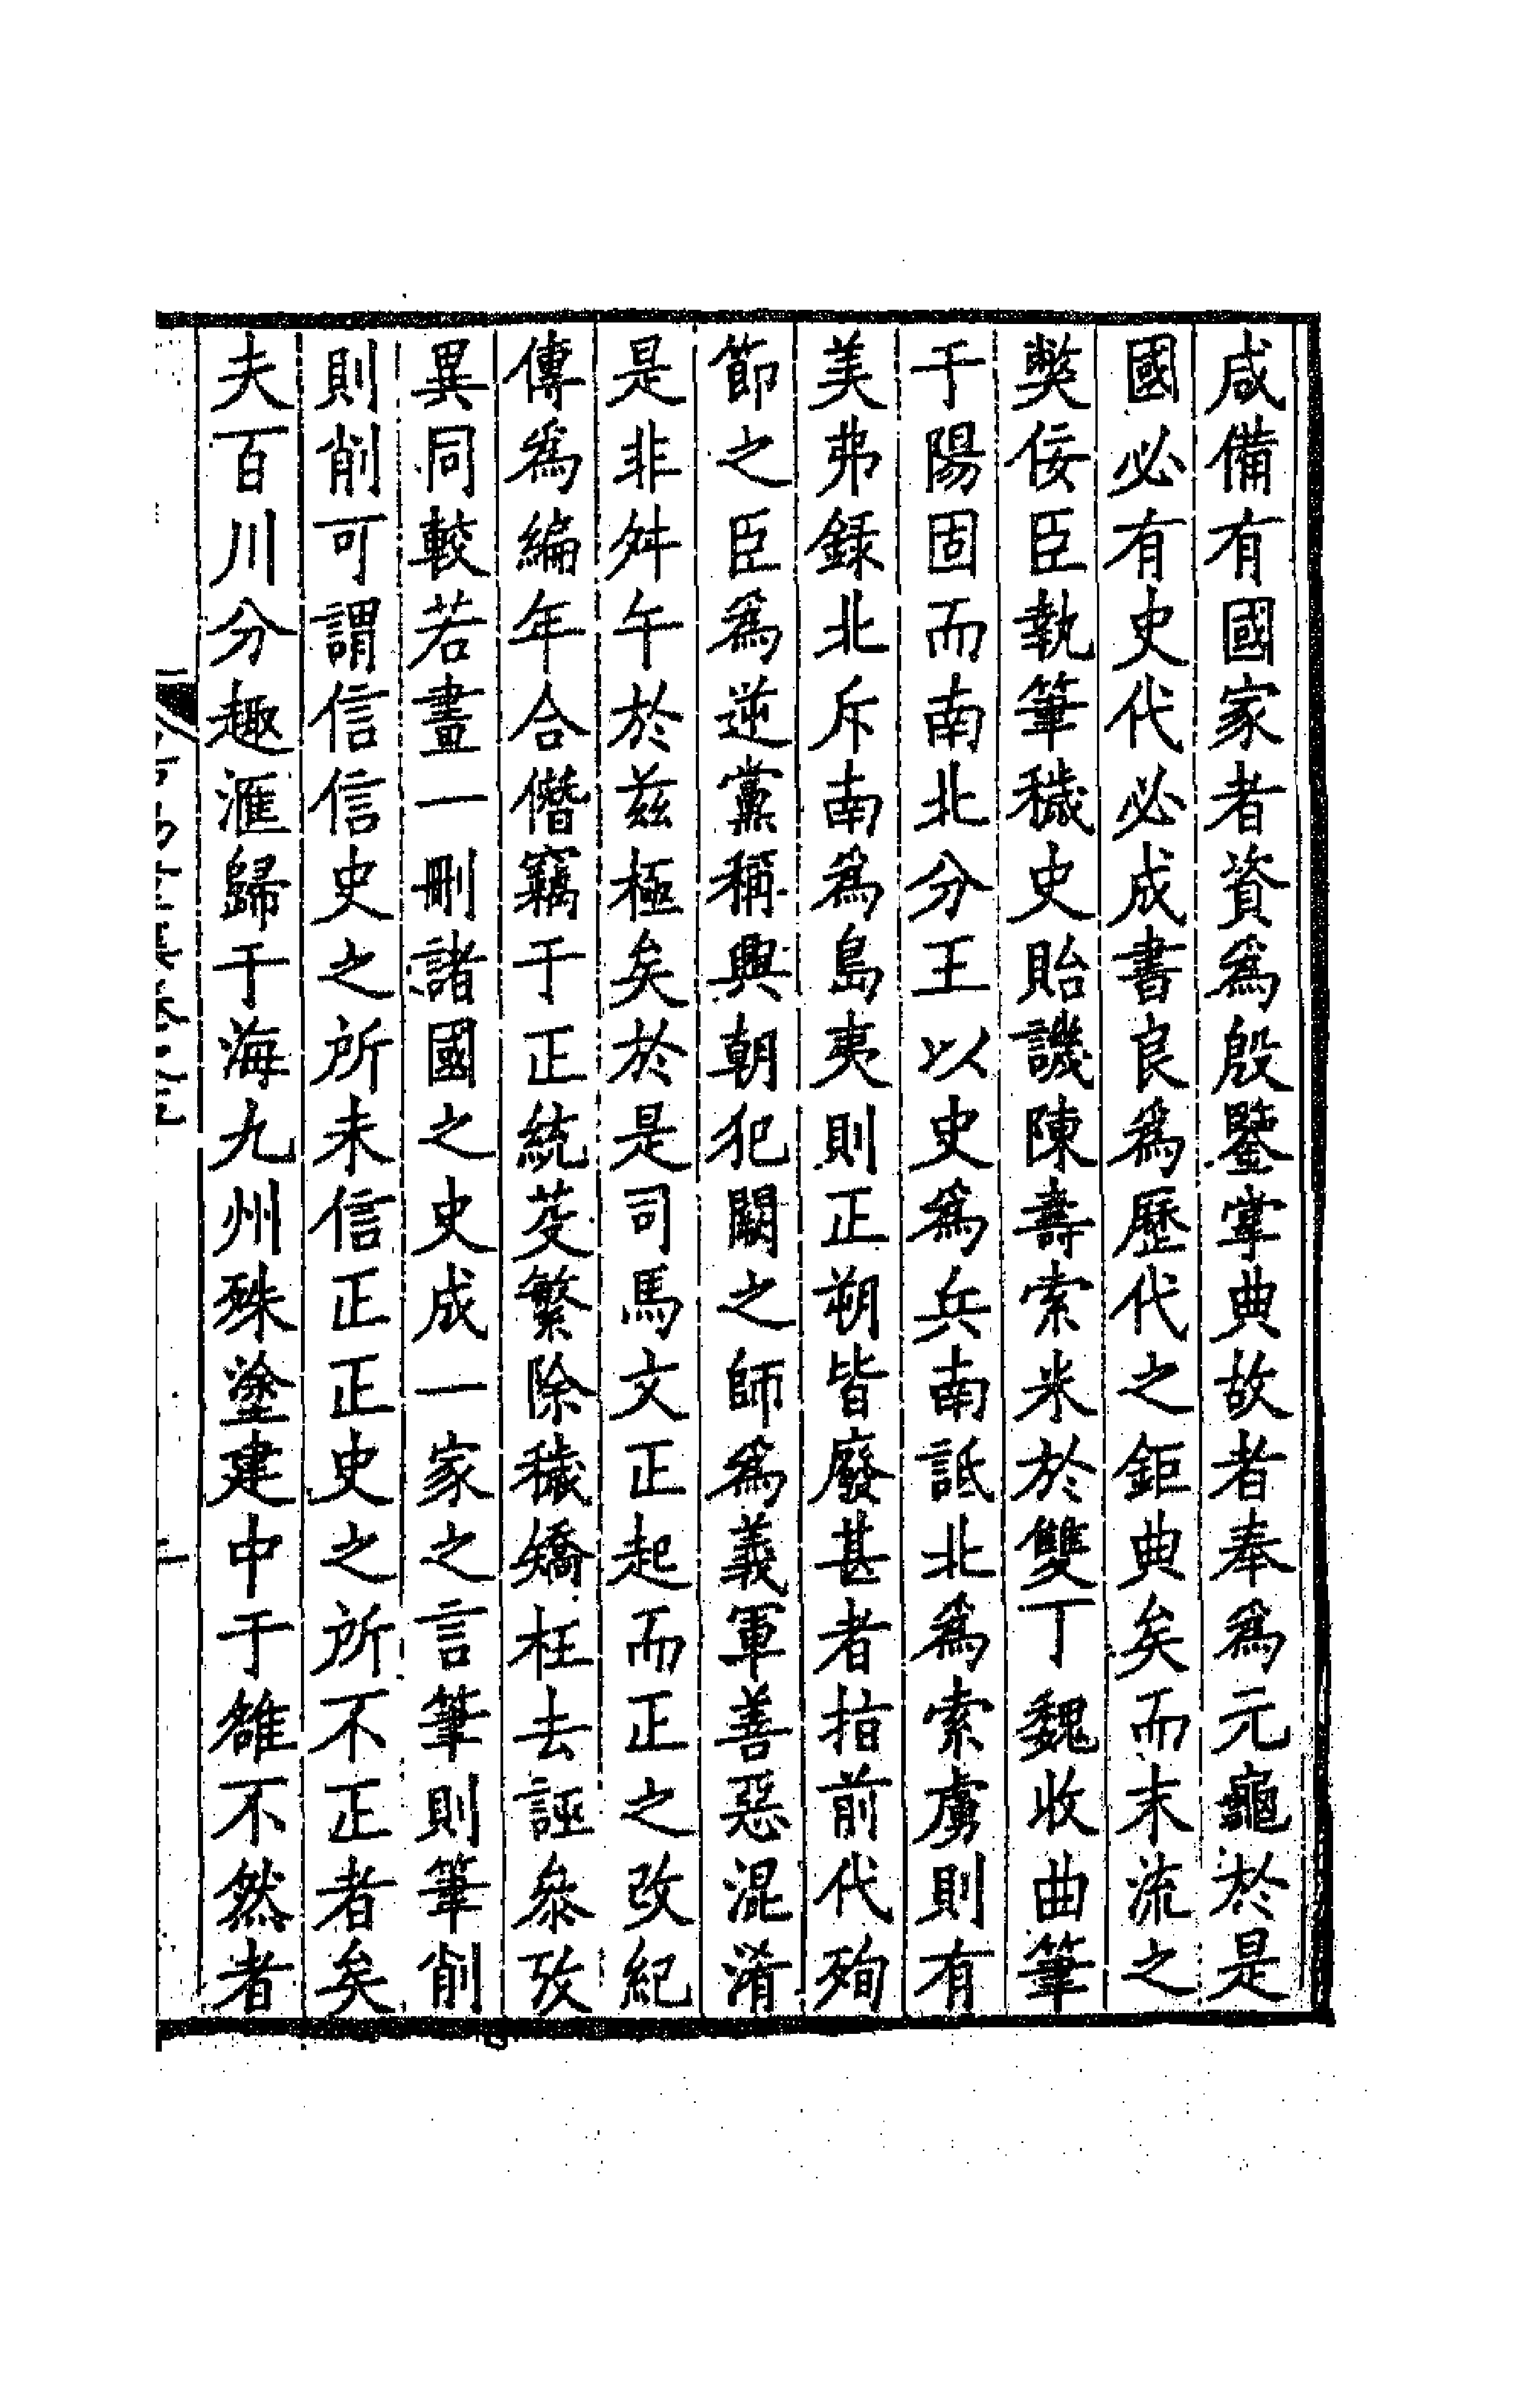 咸備有國家者資爲殷鑒掌典故者奉爲元龜於是
國必有史代必成書良爲歷代之鉅典矣而末流之
獘佞臣執筆穢史貽譏陳壽索米於雙丁魏收曲筆
于陽固而南北分王以史爲兵南詆北爲索虜則有
美弗録北斥南爲島夷則正朔皆廢甚者指前代殉
節之臣爲逆黨稱興朝犯闕之師爲義軍善惡混淆
是非舛午於兹極矣於是司馬文正起而正之改紀
傳爲編年合僭竊于正統芟繁除穢矯枉去誣叅攷
異同較若畫一刪諸國之史成一家之言筆則筆削
則削可謂信信史之所未信正正史之所不正者矣
夫百川分趣滙歸于海九州殊塗建中于雒不然者